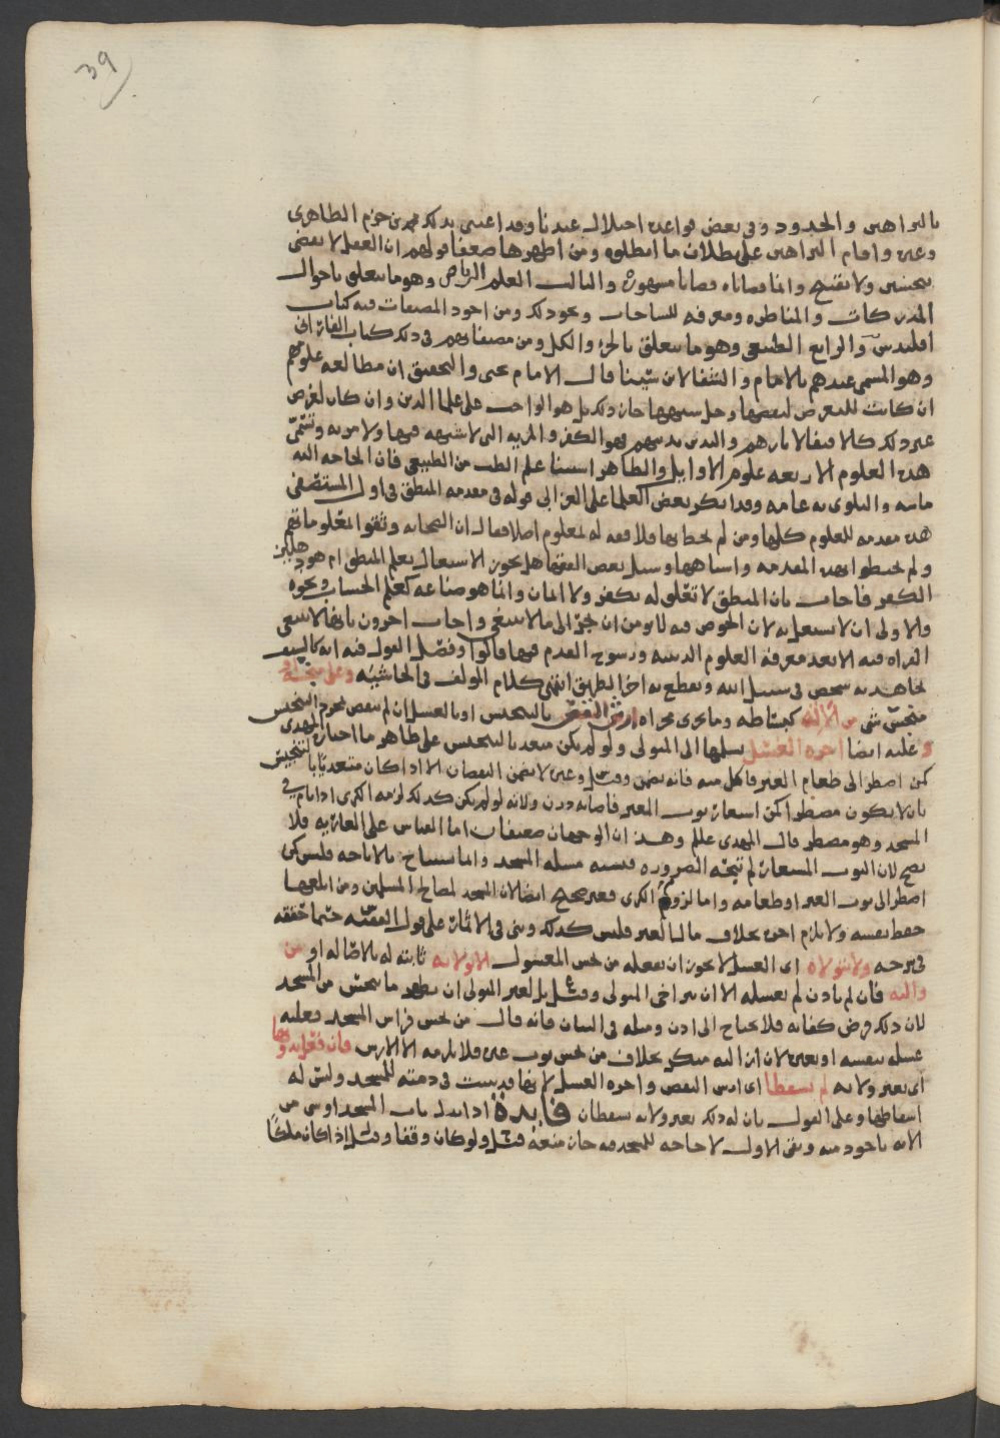 39
بالبراهين والحدود وفي بعض قواعده اختلال عندنا وقد اعتنى بذلك محمد بن حزم الظاهري
وغيره واقام البراهين على بطلان ما ابطلوه ومن اظهرها ضعفا قولهم ان العقل لا يعض
يحسن ولا يقبح وانما قضاياه قضايا مشهوره والثالث العلم الرياضي وهو ما يتعلق باحوال
المدركات والمناظره ومعرفه المساحات ونحو ذلك ومن اجود المصنفات فيه كتاب
اقليدس والرابع الطبيعي وهو ما يتعلق بالجزء والكل ومن مصنفاتهم في ذلك كتاب الفارابي
وهو المسمى عندهم بالامام والشفا لابن سينا قال الامام يحيى والتحقيق ان مطالعه علومهم
ان كانت للتعرض لنقضها وحل شبهها جاز ذلك بل هو الواجب على علما الدين وان كان لغرض
غير ذلك كالاقتفا لاثارهم والتدين بدينهم فهو الكفر والفريه التي لا شبهه فيها ولا مريه وتسمى
هذه العلوم الاربعه علوم الاوايل والظاهر استثنا علم الطب من الطبيعي فان الحاجه اليه
ماسه والبلوى به عامه وقد انكر بعض العلما على الغزالي قوله في مقدمه المنطق في اول المستصفى
هذه مقدمه للعلوم كلها ومن لم يحط بها فلا ثقه له بمعلوم اصلا فقال ان الصحابه وثقوا بمعلوماتهم
ولم يحيطوا بهذه المقدمه واشباهها وسيل بعض الفقها هل يجوز الاشتغال بعلم المنطق ام هو دهليز
الكفر فاجاب بان المنطق لا تعلق له بكفر ولا ايمان وانما هو صناعه كعلم الحساب ونحوه
والاولى ان لا يشتغل به لان الخوض فيه لا يومن ان يجر الى ما لا ينبغي واجاب اخرون بانها لا تنبغي
القراه فيه الا بعد معرفه العلوم الدينيه ورسوخ القدم فيها قالوا وفصل القول فيه انه كالسيف
يجاهد به شخص في سبيل الله ويقطع به اخر الطريق انتهى كلام المولف في الحاشيه وعلى منجسه او
منجس شي من الاته كبساطه وما جرى مجراه ارش النقص بالتنجيس او بالغسل ان لم ينقص بمجرد التنجيس
وعليه ايضا اجره الغسل يسلمها الى المتولي ولو لم يكن متعد بالتنجيس على ظاهر ما اختاره المهدي
كمن اضطر الى طعام الغير فاكل منه فانه يضمن وقيل وغيره لا يضمن النقصان الا اذا كان متعديا بالتنجيس
بان لا يكون مضطرا كمن استعار ثوب الغير فاصابه درن ولانه لو لم يكن كذلك لزمه الكرى اذا نام في
المسجد وهو مضطر قال المهدي عللم وهذان الوجهان ضعيفان اما القياس على العاريه فلا
يصح لان الثوب المستعار لم تبحه الضروره وقسنه مسله المسجد وانما يستباح بالاباحه فليس كمن
اضطر الى ثوب الغير او طعامه واما لزوم الكرى فغير صحيح ايضا لان المسجد لمصالح المسلمين ومن ابلغها
حفظ نفسه ولا يلزم اجره بخلاف مال الغير فليس كذلك وبنى في الاثمار على قول الفقيه حسبما حققه
في شرحه ولا يتولاه اي الغسل لا يجوز ان يفعله من نجس المغسول الا ولايه ثابته له بالاصاله او من
واليه فان لم ياذن لم يغسله الا ان يتراخى المتولي وقيل بل لغير المتولي ان يطهر ما ينجس من المسجد
لان ذلك فرض كفايه فلا يحتاج الى اذن ومثله في البيان فانه قال من نجس فراش المسجد فعليه
غسله بنفسه او بغيره لان ازالته منكر بخلاف من نجس ثوب غيره فلا يلزمه الا الارش فان فعل بدونها
اي بغير ولايه لم يسقطا اي ارش النقص واجره الغسل لانهما قد ثبت في ذمته للمسجد وليس له
اسقاطها وعلى القول بان له ذلك بغير ولايه يسقطان فايده اذا بدل باب المسجد او شي من
الاته باجود منه وبقي الاول لا حاجه للمسجد فيه جاز منعه قيل ولو كان وقفا وقيل اذا كان ملكا